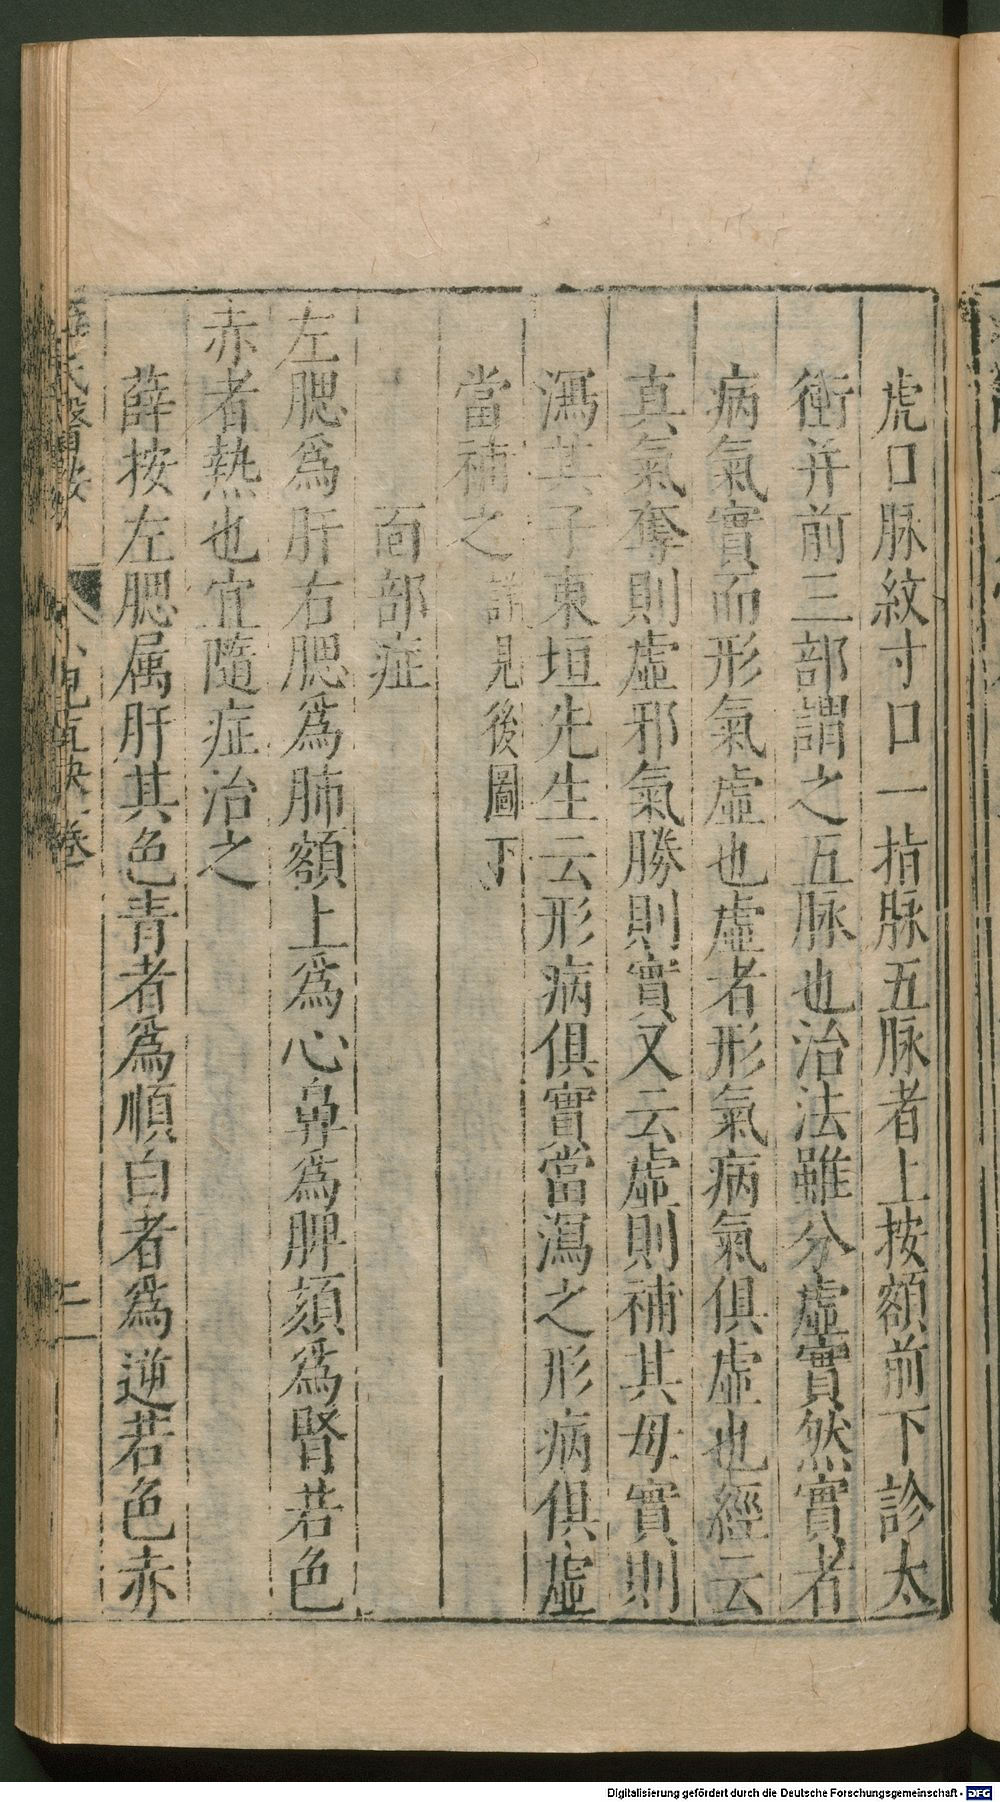 虎口脉紋寸口一指脉五脉者上按額前下診太
衝并前三部謂之五脉也治法雖分虛實然實者
病氣實而形氣虛也虛者形氣病氣俱虛也經云
真氣奪則虛邪氣勝則實又云虛則補其母實則
瀉其子東垣先生云形病俱實當瀉之形病俱虛
當補之詳見後圖下
面部症
左腮爲肝右腮爲肺額上爲心鼻爲脾頦爲腎若色
赤者熱也宜隨症治之
薛按左腮属肝其色青者爲順白者爲逆若色赤
氏醫按
卷
三
Digitalisierung gefördert durch die Deutsche Forschungsgemeinschaft - DFG